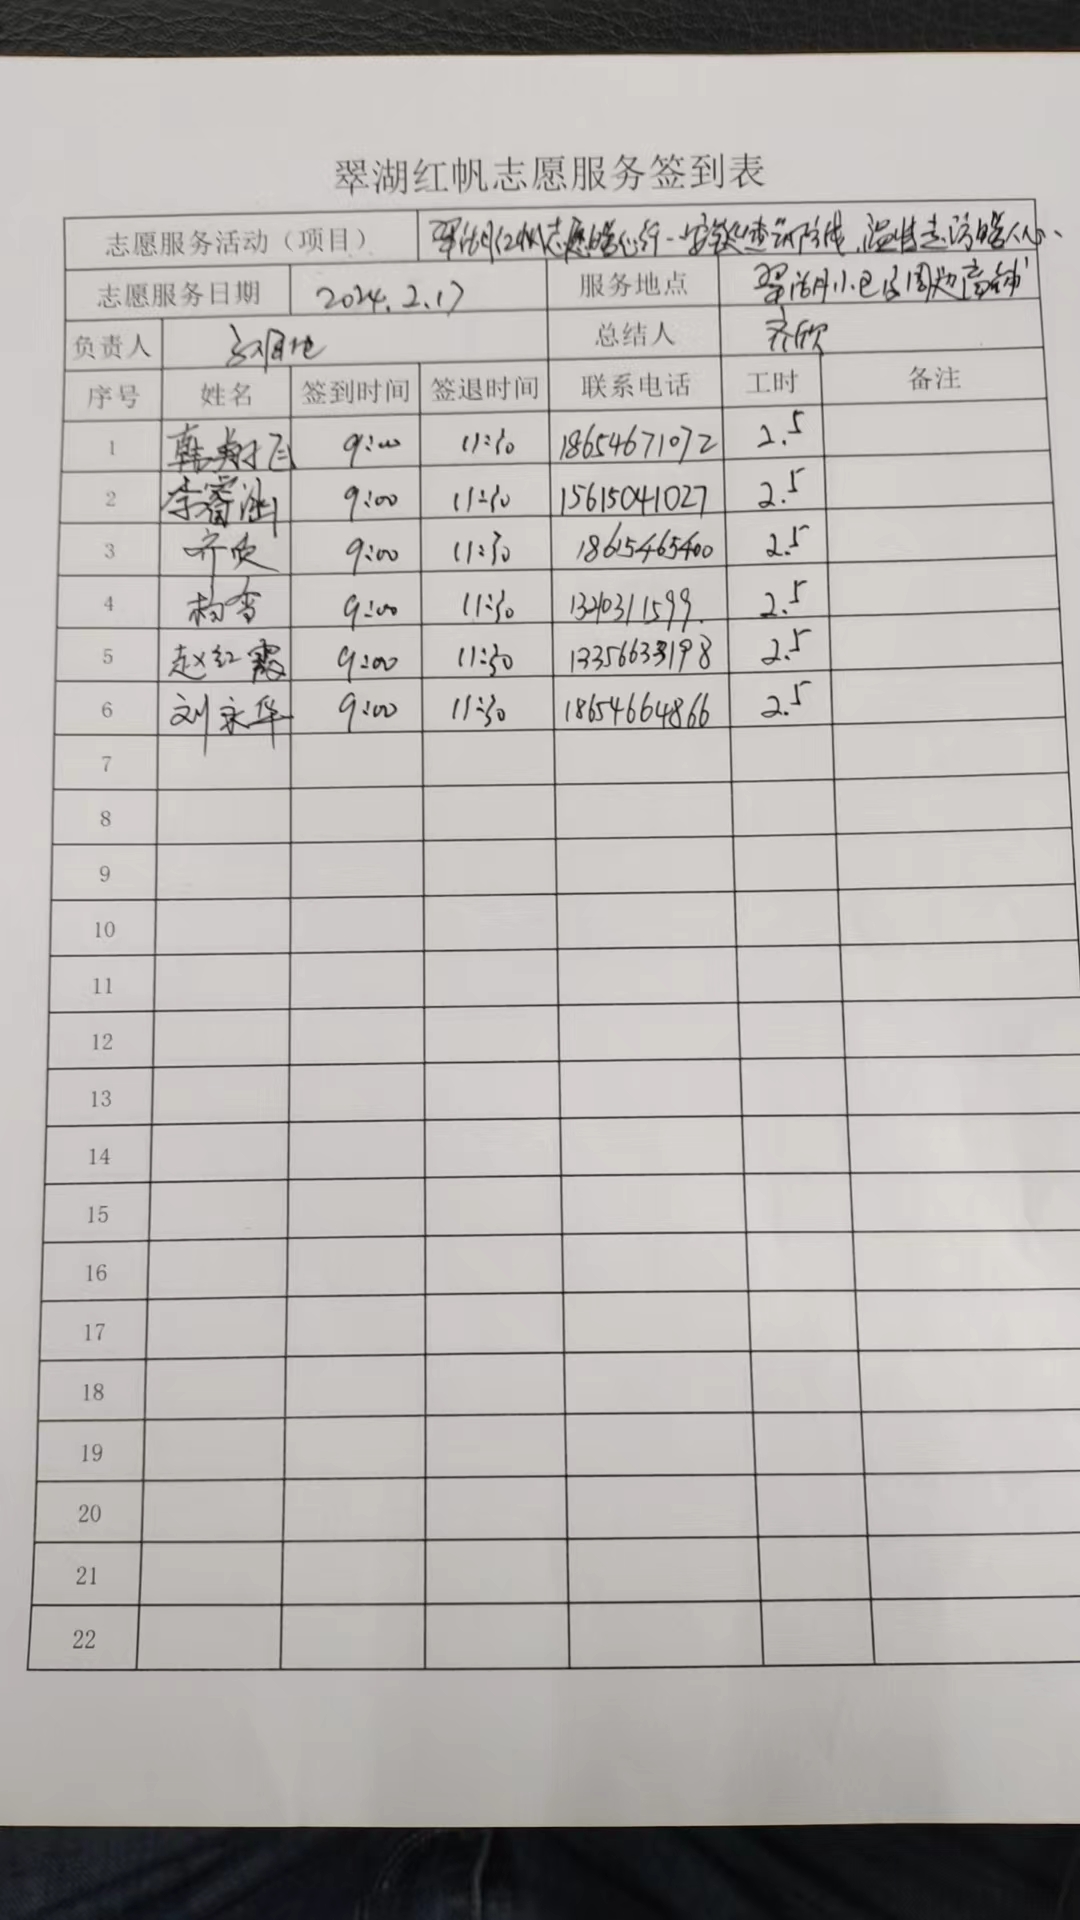 翠湖红帆志愿服务签到表
志愿服务活动（项目） 翠湖红帆志愿暖心行—安全巡查筑防线,温情走访暖人心.
志愿服务日期 2024.2.17 服务地点 翠湖小区及周边商铺
负责人 总结人 齐欣
序号 姓名 签到时间 签退时间 联系电话 工时 备注
1 韩翔飞 9:00 11:30 18654671072 2.5
2 李睿 9:00 11:30 15615041027 2.5
3 齐欣 9:00 11:30 18615465400 2.5
4 9:00 11:30 2.5
5 赵红霞 9:00 11:30 13356633198 2.5
6 刘永华 9:00 11:30 18654664866 2.5
7
8
9
10
11
12
13
14
15
16
17
18
19
20
21
22